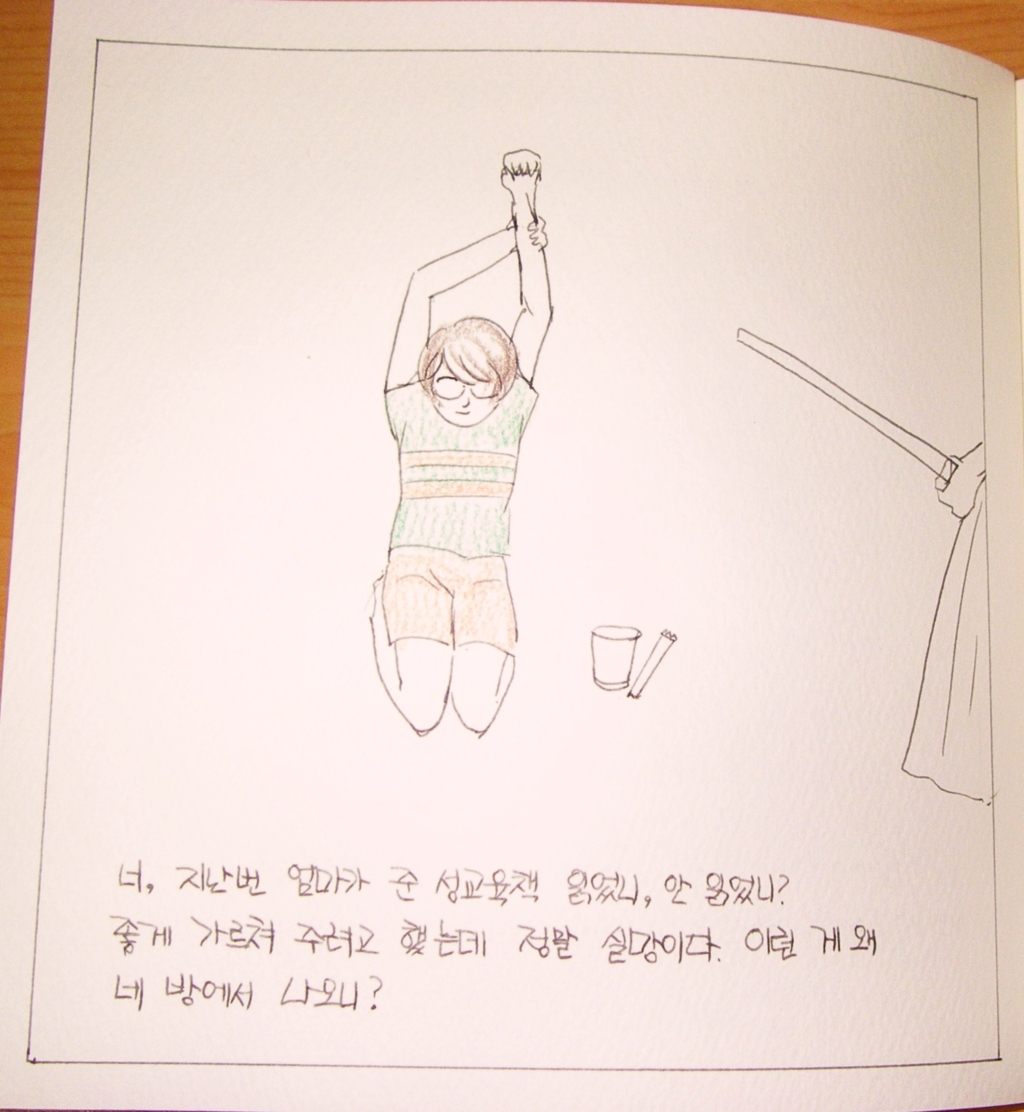 너, 지난번 엄마가 준 성교육책 읽었니, 안 읽었니?
좋게 가르쳐 주려고 했는데 정말 실망이다. 이런 게 왜
네 방에서 나오니?